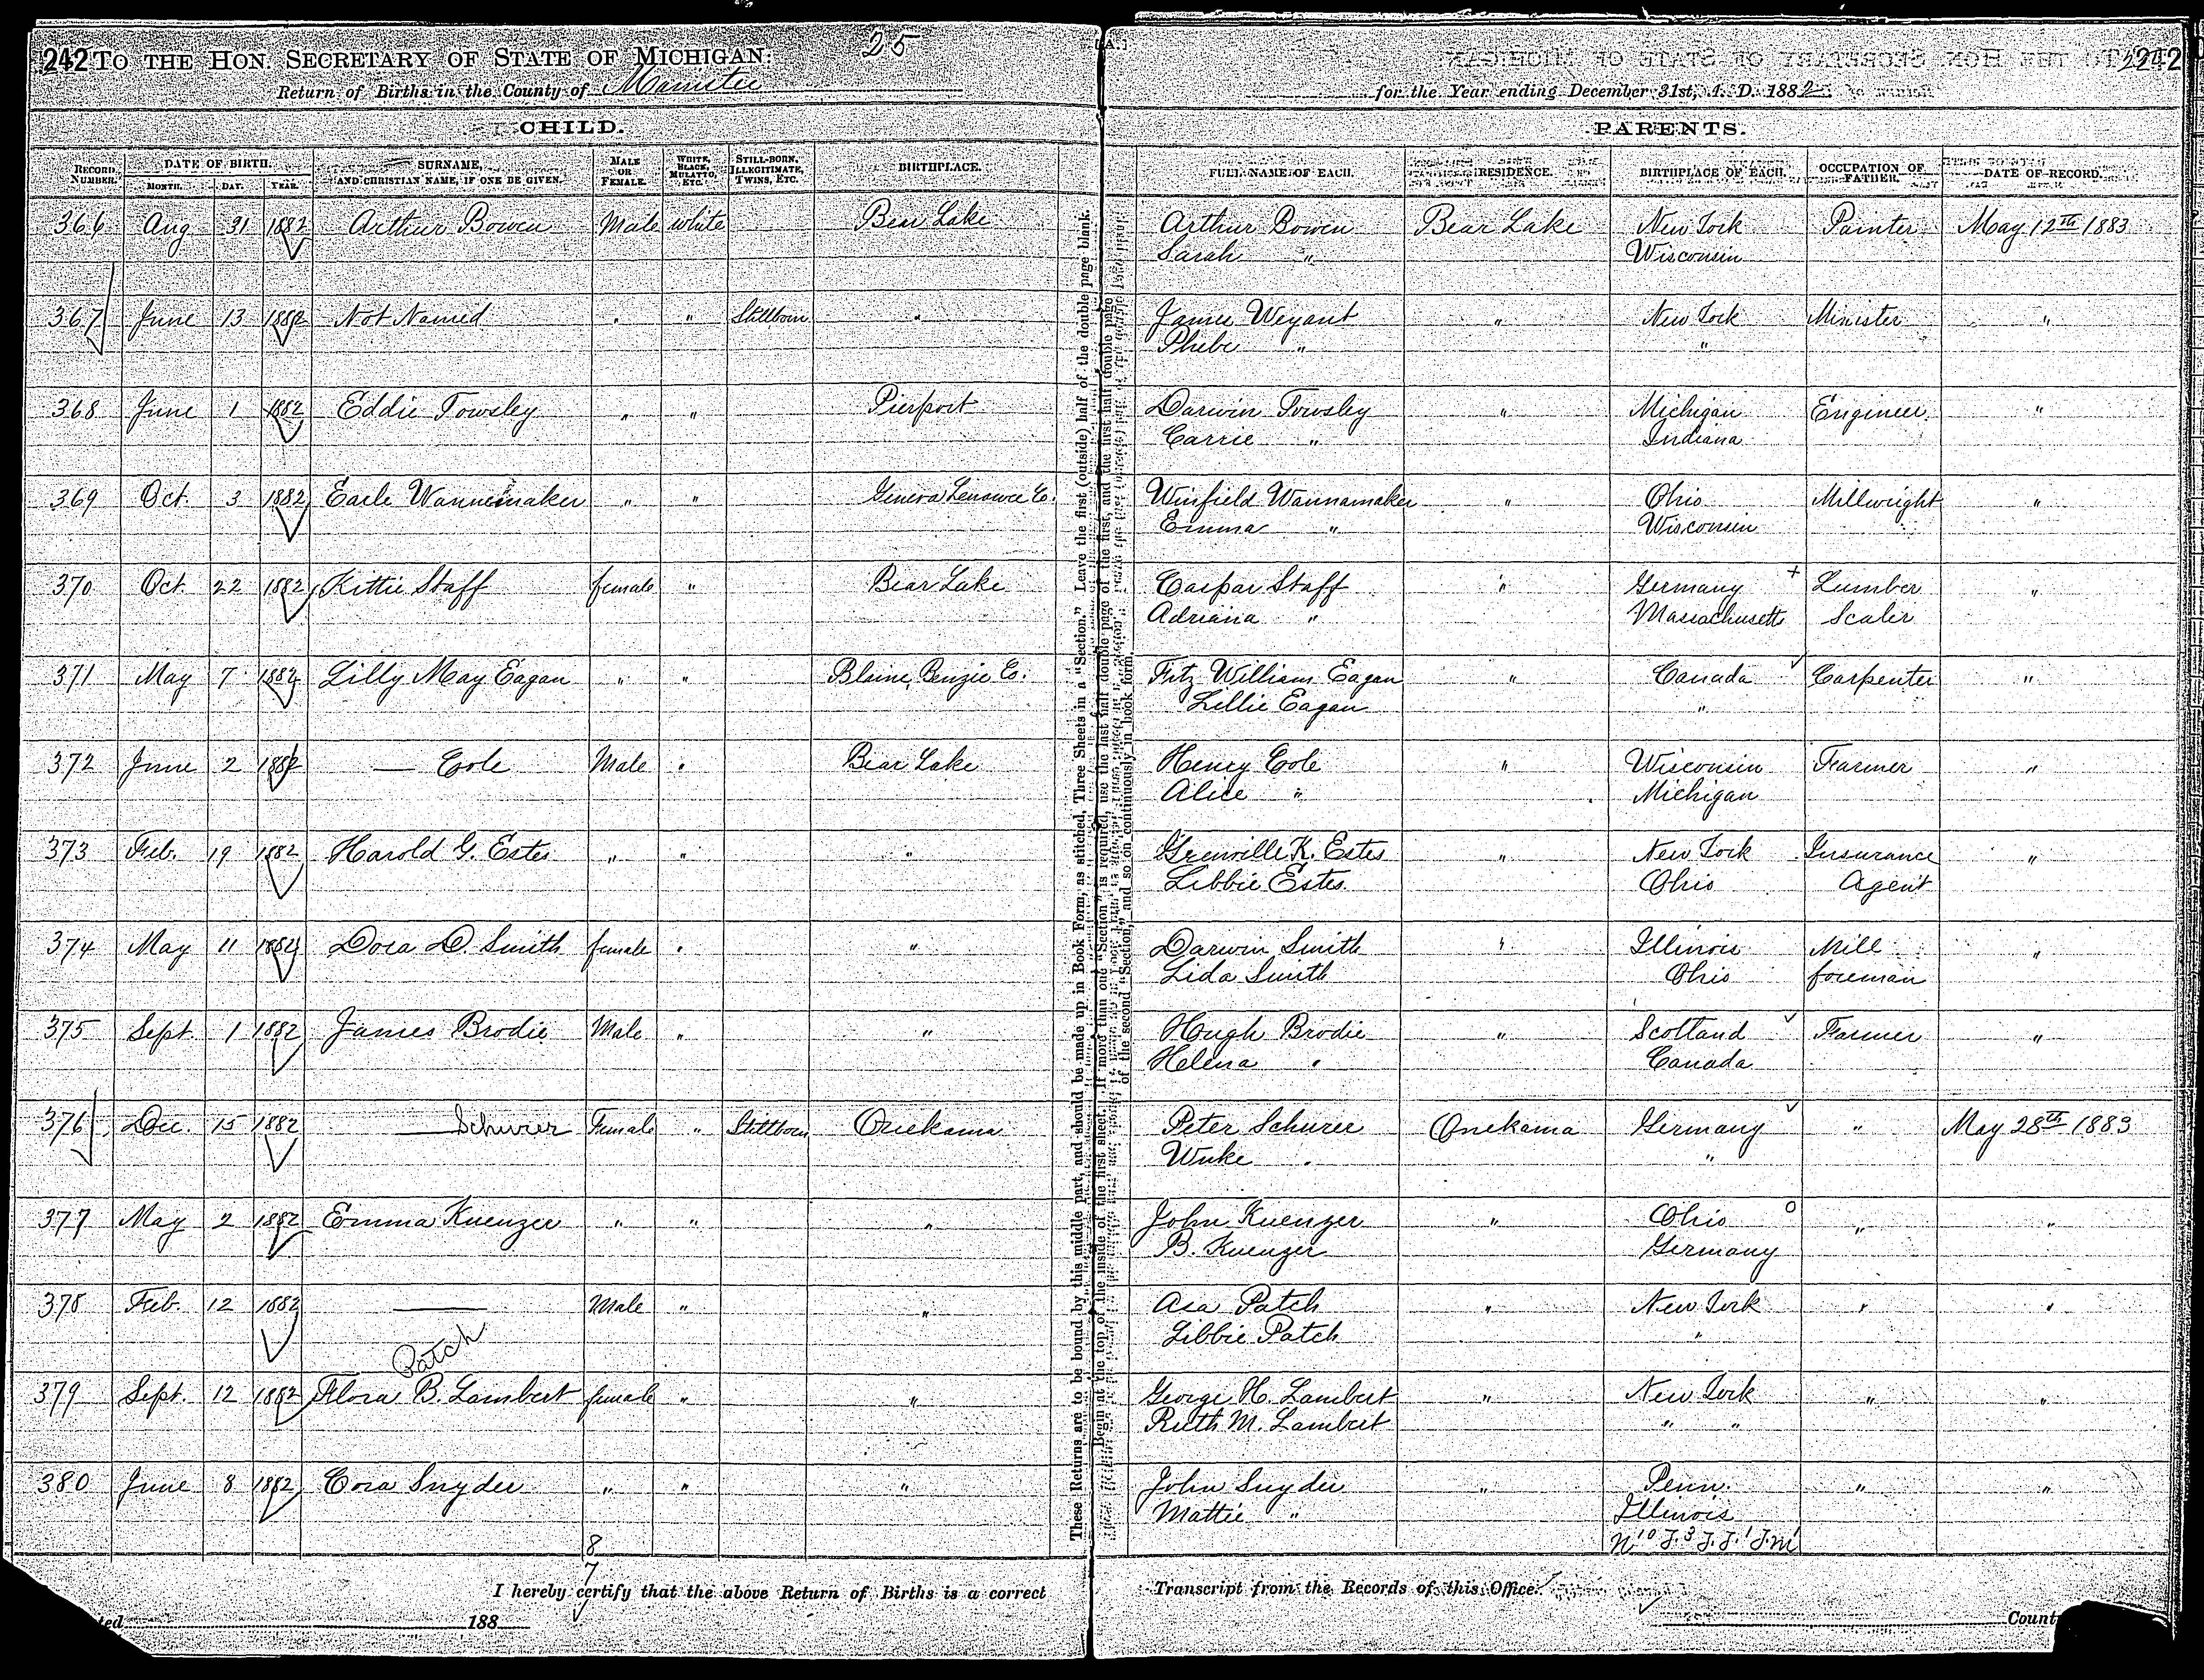 242 TO THE HON. SECRETARY OF STATE OF MICHIGAN: 25 242
Return of Births in the County of Manistee for the Year ending December 31st, A. D. 1882
CHILD. PARENTS.
RECORD NUMBER. DATE OF BIRTH. MONTH. DAY. YEAR. SURNAME, AND CHRISTIAN NAME, IF ONE BE GIVEN. MALE OR FEMALE. WHITE, BLACK, MULATTO, ETC. STILL-BORN, ILLEGITIMATE, TWINS, ETC. BIRTHPLACE. FULL NAME OF EACH. RESIDENCE. BIRTHPLACE OF EACH. OCCUPATION OF FATHER. DATE OF RECORD.
366 Aug 31 1882 Arthur Bowen Male white Bear Lake Arthur Bowen Bear Lake New York Painter May 12th 1883
Sarah " Wisconsin
367 June 13 1882 Not Named " " Stillborn " James Weyant " New York Minister "
Phebe " "
368 June 1 1882 Eddie Towsley " " Pierport Darwin Towsley " Michigan Engineer "
Carrie " Indiana
369 Oct. 3 1882 Earle Wannemaker " " Geneva Lenawee Co. Winfield Wannamaker " Ohio Millwright "
Emma " Wisconsin
370 Oct. 22 1882 Kittie Staff female " Bear Lake Caspar Staff " Germany + Lumber "
Adriana " Massachusetts Scaler
371 May 7 1882 Lilly May Eagan " " Blaine, Benzie Co. Fitz William Eagan " Canada Carpenter "
Lillie Eagan "
372 June 2 1882 — Cole Male " Bear Lake Henry Cole " Wisconsin Farmer "
Alice " Michigan
373 Feb. 19 1882 Harold G. Estes " " " Grenville K. Estes " New York Insurance "
Libbie Estes. Ohio Agent
374 May 11 1882 Dora D. Smith female " " Darwin Smith " Illinois Mill "
Lida Smith Ohio foreman
375 Sept. 1 1882 James Brodie Male " " Hugh Brodie " Scotland Farmer "
Helena " Canada
376 Dec. 15 1882 — Schurer Female " Stillborn Onekama Peter Schurer Onekama Germany " May 28th 1883
Wuke " "
377 May 2 1882 Emma Kuenzer " " " John Kuenzer " Ohio o " "
B. Kuenzer Germany
378 Feb. 12 1882 — Male " " Asa Patch " New York " "
Patch Libbie Patch "
379 Sept. 12 1882 Flora B. Lambert female " " George H. Lambert " New York " "
Ruth M. Lambert " "
380 June 8 1882 Cora Snyder " " " John Snyder " Penn. " "
Mattie " Illinois
8
7
I hereby certify that the above Return of Births is a correct Transcript from the Records of this Office.
188
These Returns are to be bound by this middle part, and should be made up in Book Form, as stitched, Three Sheets in a "Section." Leave the first (outside) half of the double page blank.
Begin at the top of the inside of the first sheet. If more than one "Section" is required, use the last half double page of the first, and the first half double page
of the second "Section," and so on continuously in book form.